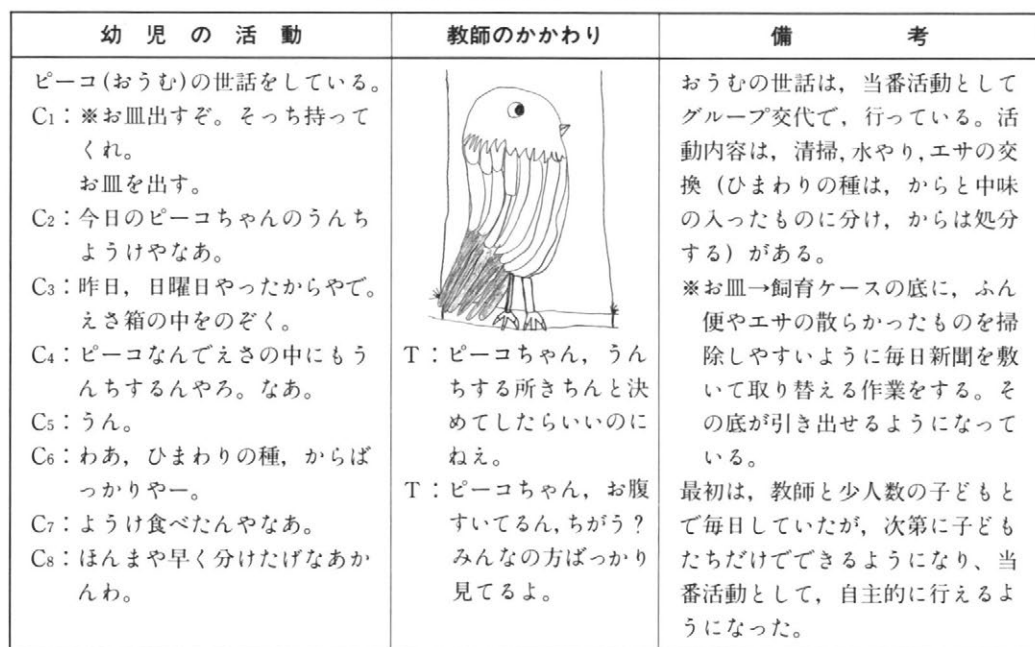 幼児の活動
教師のかかわり
備考
ピーコ(おうむ)の世話をしている。
C1：※お皿出すぞ。そっち持って
くれ。
お皿を出す。
C2：今日のピーコちゃんのうんち
ようけやなあ。
C3：昨日，日曜日やったからやで。
えさ箱の中をのぞく。
C4：ピーコなんでえさの中にもう
んちするんやろ。なあ。
C5：うん。
C6：わあ，ひまわりの種，からば
っかりやー。
C7：ようけ食べたんやなあ。
C8：ほんまや早く分けたげなあか
んわ。
T：ピーコちゃん，うん
ちする所きちんと決
めてしたらいいのに
ねえ。
T：ピーコちゃん，お腹
すいてるん，ちがう？
みんなの方ばっかり
見てるよ。
おうむの世話は，当番活動として
グループ交代で，行っている。活
動内容は，清掃，水やり，エサの交
換（ひまわりの種は，からと中味
の入ったものに分け，からは処分
する）がある。
※お皿→飼育ケースの底に，ふん
便やエサの散らかったものを掃
除しやすいように毎日新聞を敷
いて取り替える作業をする。そ
の底が引き出せるようになって
いる。
最初は，教師と少人数の子どもと
で毎日していたが，次第に子ども
たちだけでできるようになり、当
番活動として，自主的に行えるよ
うになった。